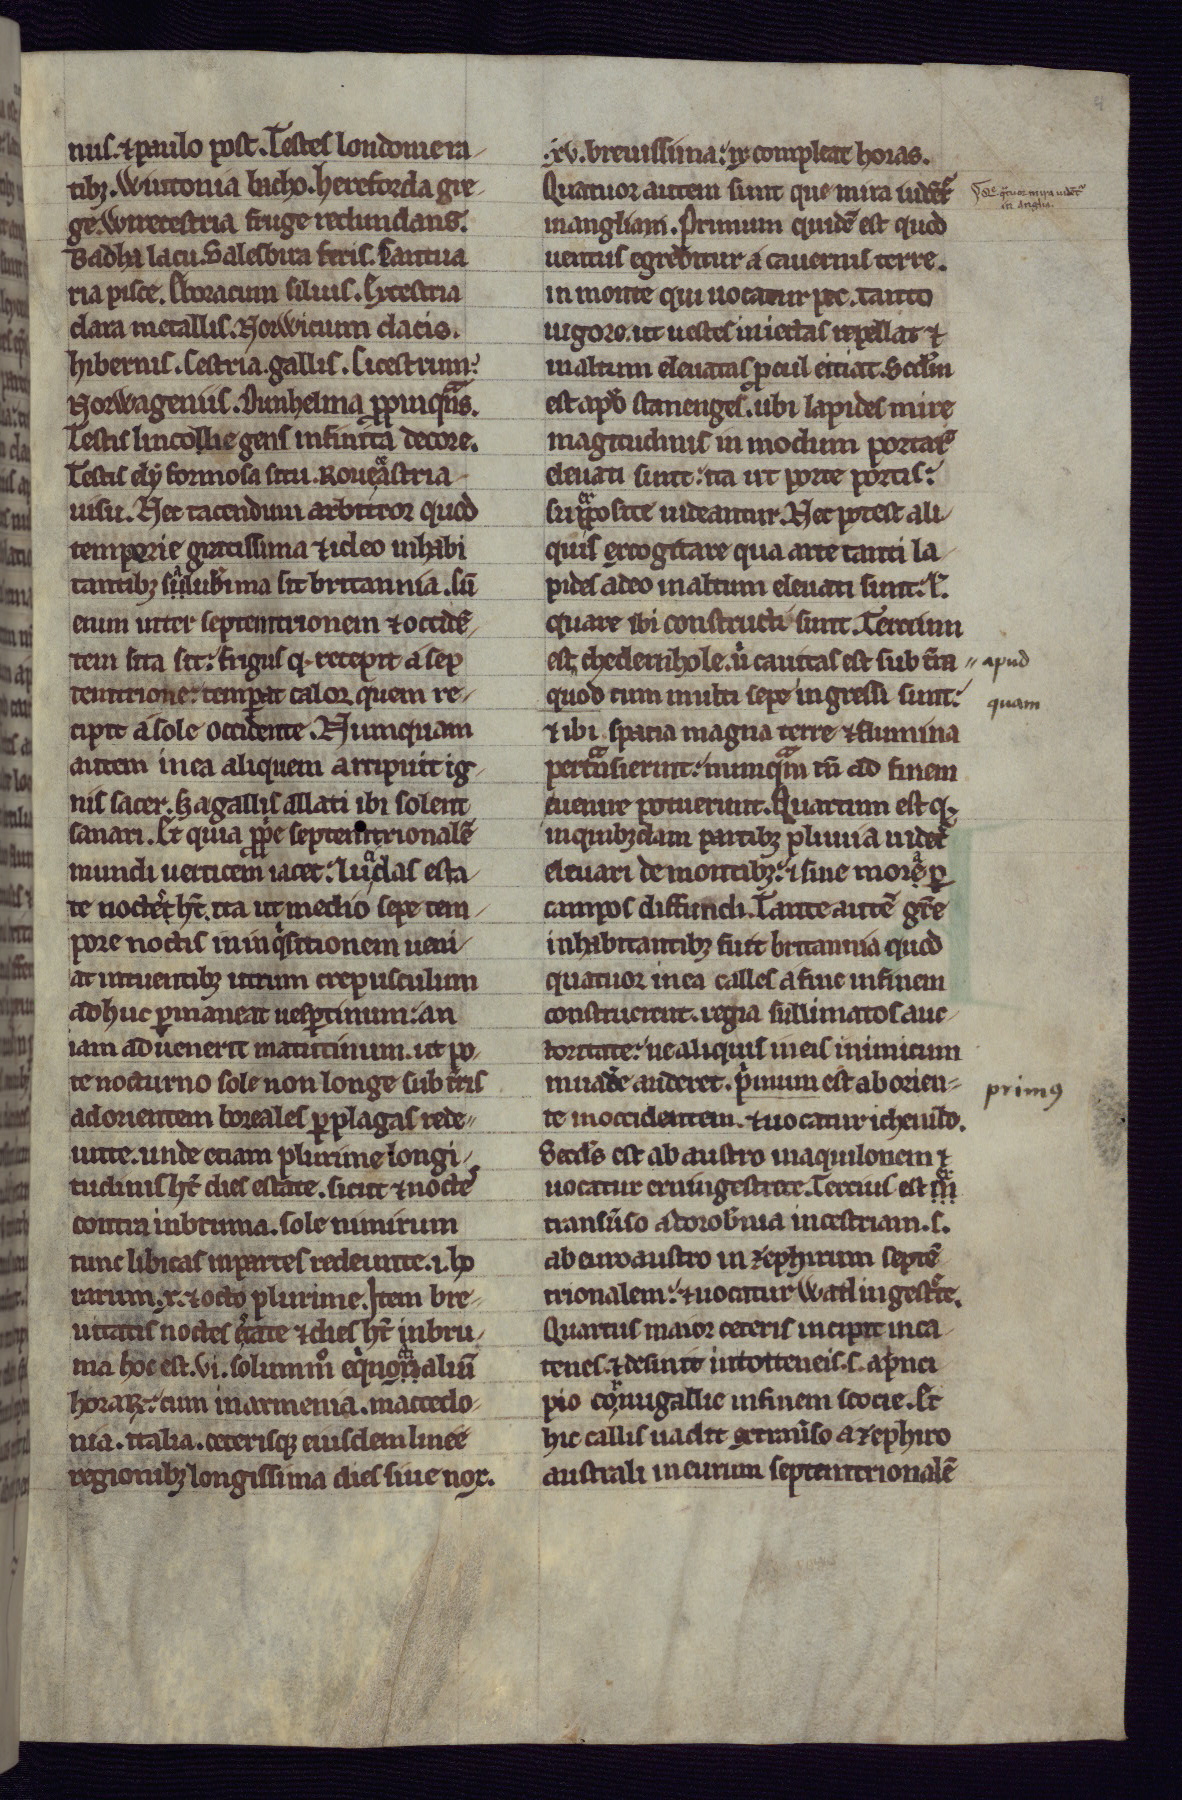 nus. ⁊ paulo post. Testes londonie ra-
tibꝫ. Wintonia bacho. hereforda gre-
ge. Wirecestria fruge redundans.
Badha lacu. Salesbira feris. Cantua
ria pisce. Eboracum siluis. Excestria
clara metallis. Norwicum dacis.
hibernis. Cestria. gallis. Cicestrum:
Norwageniis. Dunhelma ꝓpinqᵃns.
Testis lincolie gens infinita decore.
Testis ely formosa situ. Roueᶜᵉastria-
uisu. Nec tacendum arbitror quod
temperie gratissima ⁊ ideo inhabi
tantibꝫ saluƀima sit britannia. cū
enim inter septemtrionem ⁊ occidē-
tem sita sit: frigus q̇. recepit a sep
temtrione: temꝑat calor quem re-
cipit a sole occidente. Numquam
autem in ea aliquem arripuit ig-
nis sacer. Sꝫ a gallis allati ibi solent
sanari. Et quia ꝓpe septemtrionalē
mundi uerticem iacet: lucidas esta-
te noctes hꝫ. ita ut medio sepe tem-
pore noctis in inq̇sitionem ueni-
at intuentibꝫ utrum crepusculum
adhuc ꝑmaneat uesꝑtinum: an
iam aduenerit matutinum. ut po-
te nocturno sole non longe sub tr̄is
ad orientem boreales ꝑ plagas rede-
unte. unde etiam plurime longi-
tudinis hꝫ dies estate. sicut ⁊ noctes
contra in bruma. sole nimirum
tunc libicas in partes redeunte. i. ho
rarum. x. ⁊ octo plurime. Item bre-
uitatis noctes estate ⁊ dies hꝫ in bru-
ma hoc est. vi. solummͦ equinoctialiū
horaꝝ: cum in armenia. maccedo-
nia. italia. ceterisqꝫ eiusdem linee
regionibꝫ longissima dies siue nox.
.xv. breuissima: ix compleat horas.
Quatuor autem sunt que mira uidēt᷑
in angliam. Primum quidē est quod
uentus egreditur a cauernis terre.
in monte qui uocatur pec. tanto
uigore. ut uestes iniectas repellat ⁊
in altum eleuatas ꝓcul eiciat. Scdm̄
est apd̓ stanenges. ubi lapides mire
magitudinis in modum portaꝝ
eleuati sunt: ita ut porte portis:
suꝑposite uideantur. Nec potest ali-
quis excogitare qua arte tanti la-
pides adeo in altum eleuati sunt: ł.
quare ibi constructi sunt. Tercium
est chederichole. u̇ cauitas est sub tr̄a
quod cum multi sepe ingressi sunt:
⁊ ibi spatia magna terre ⁊ flumina
pertᵃnsierint: numqᵃm tn̄ ad finem
euenire potuerunt. Quartum est q̇.
in quibꝫdam partibꝫ pluuia uidet᷑
eleuari de montibꝫ: ⁊ sine morᵃ ꝑ
campos diffundi. Tante autē gr̄e
inhabitantibꝫ fuit britannia quod
quatuor in ea calles a fine in finem
construerent. regia sullimatos auc-
toritate: ne aliquis in eis inimicum
inuadere auderet. p̓mum est ab orien-
te in occidentem. ⁊ uocatur ichenild.
Secds̄ est ab austro in aquilonem ⁊
uocatur erningestrate. Tercius est ex
transūso a dorobnia in cestriam. s.
ab euroaustro in zephirum septē
trionalem: ⁊ uocatur Watlingestᵉte.
Quartus maior ceteris incipit in ca-
tenes. ⁊ desinit in totteneis. s. a p̓nci
pio cornugallie in finem scocie. Et
hic callis uadit extrausͦ a zephiro
australi in eurum septemtrionalē
4
qᵃtuor mira uidēt᷑
in Anglia.
apud
quam
primꝰ